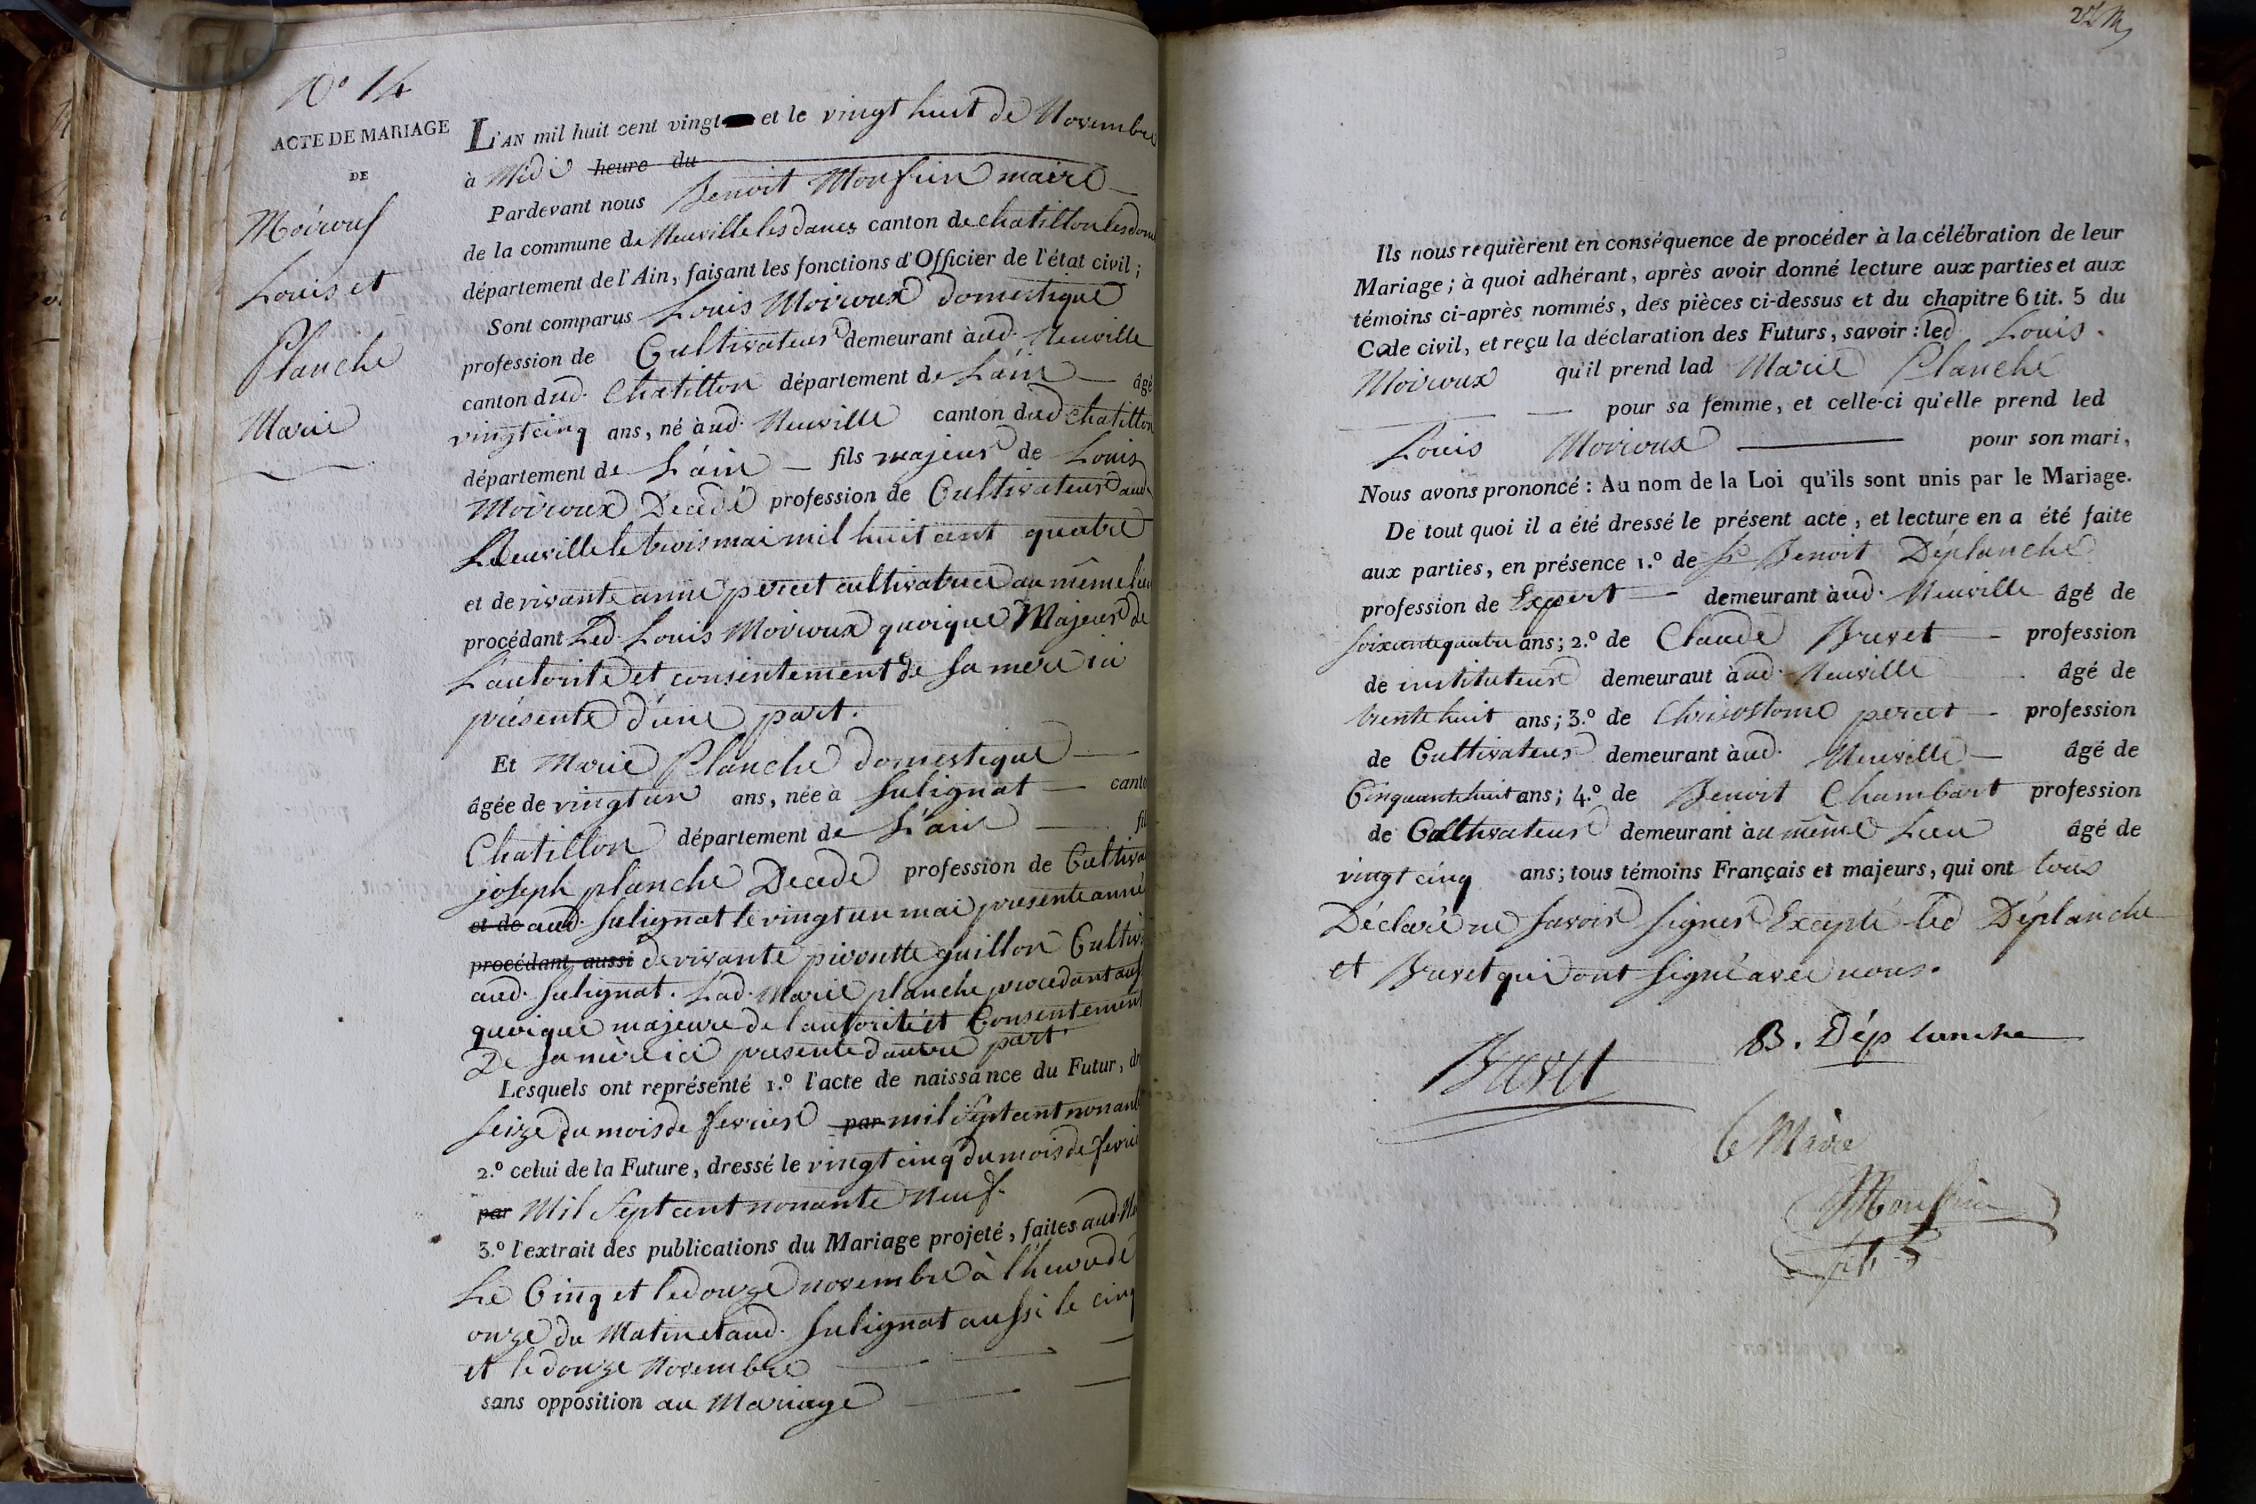 N° 14
ACTE DE MARIAGE
DE
Moiroux
Louis et
Planche
Marie
L'AN mil huit cent vingt et le vingt huit de Novembre
à Midi heure du
Pardevant nous Benoit Monfrin maire
de la commune de Neuville les dames canton de chatillon les dom
département de l'Ain, faisant les fonctions d'Officier de l'état civil;
Sont comparus Louis Moiroux domestique
profession de Cultivateur demeurant àud. Neuville
canton dud. Chatillon département de L'ain âgé
vingt cinq ans, né àud. Neuville canton dud chatillon
département de L'ain fils majeur de Louis
Moiroux Décédé profession de Cultivateur aud
Neuville le trois mai mil huit cent quatre
et de vivante anne percet cultivatrice au même lieu
procédant Led. Louis Moiroux quoique Majeur de
L'autorité et consentement de sa mère ici
présente d'une part.
Et Marie Planche domestique
âgée de vingt un ans, née à Sulignat canto
Chatillon département de L'ain fil
joseph planche Decede profession de Cultiva
et de aud. Sulignat le vingt un mai presente année
procédant aussi de vivante pierrette guillon Cultiv
aud. Sulignat. Lad. Marie planche procedant aussi
quoique majeure de l'autorité et Consentement
De sa mère ici presente d'autre part.
Lesquels ont représenté 1.° l'acte de naissance du Futur, dr
seize du mois de fevrier par mil sept cent nonant
2.° celui de la Future, dressé le vingt cinq du mois de fevrie
par Mil Sept cent nonante Neuf.
3.° l'extrait des publications du Mariage projeté, faites aud. N
Le Cinq et le douze novembre à l'heure de
onze du Matin et aud. Sulignat aussi le cinq
et le douze Novembre
sans opposition au Mariage
Ils nous requièrent en conséquence de procéder à la célébration de leur
Mariage; à quoi adhérant, après avoir donné lecture aux parties et aux
témoins ci-après nommés, des pièces ci-dessus et du chapitre 6 tit. 5 du
Code civil, et reçu la déclaration des Futurs, savoir: led Louis
Moiroux qu'il prend lad Marie Planche
pour sa femme, et celle-ci qu'elle prend led
Louis Moiroux pour son mari,
Nous avons prononcé: Au nom de la Loi qu'ils sont unis par le Mariage.
De tout quoi il a été dressé le présent acte, et lecture en a été faite
aux parties, en présence 1.° de Sr Benoit Déplanche
profession de Expert demeurant àud. Neuville âgé de
soixante quatre ans; 2.° de Claude Buvet profession
de instituteur demeuraut àud. Neuville âgé de
trente huit ans; 3.° de Chrisostome percet profession
de Cultivateur demeurant àud. Neuville âgé de
Cinquante huit ans; 4.° de Benoit Chambart profession
de Cultivateur demeurant àu même Lieu âgé de
vingt cinq ans; tous témoins Français et majeurs, qui ont tous
Déclaré ne Savoir Signer Excepté led Déplanche
et Buvet qui ont Signé avec nous.
Buvet
B. Déplanche
Le Maire
Monfrin